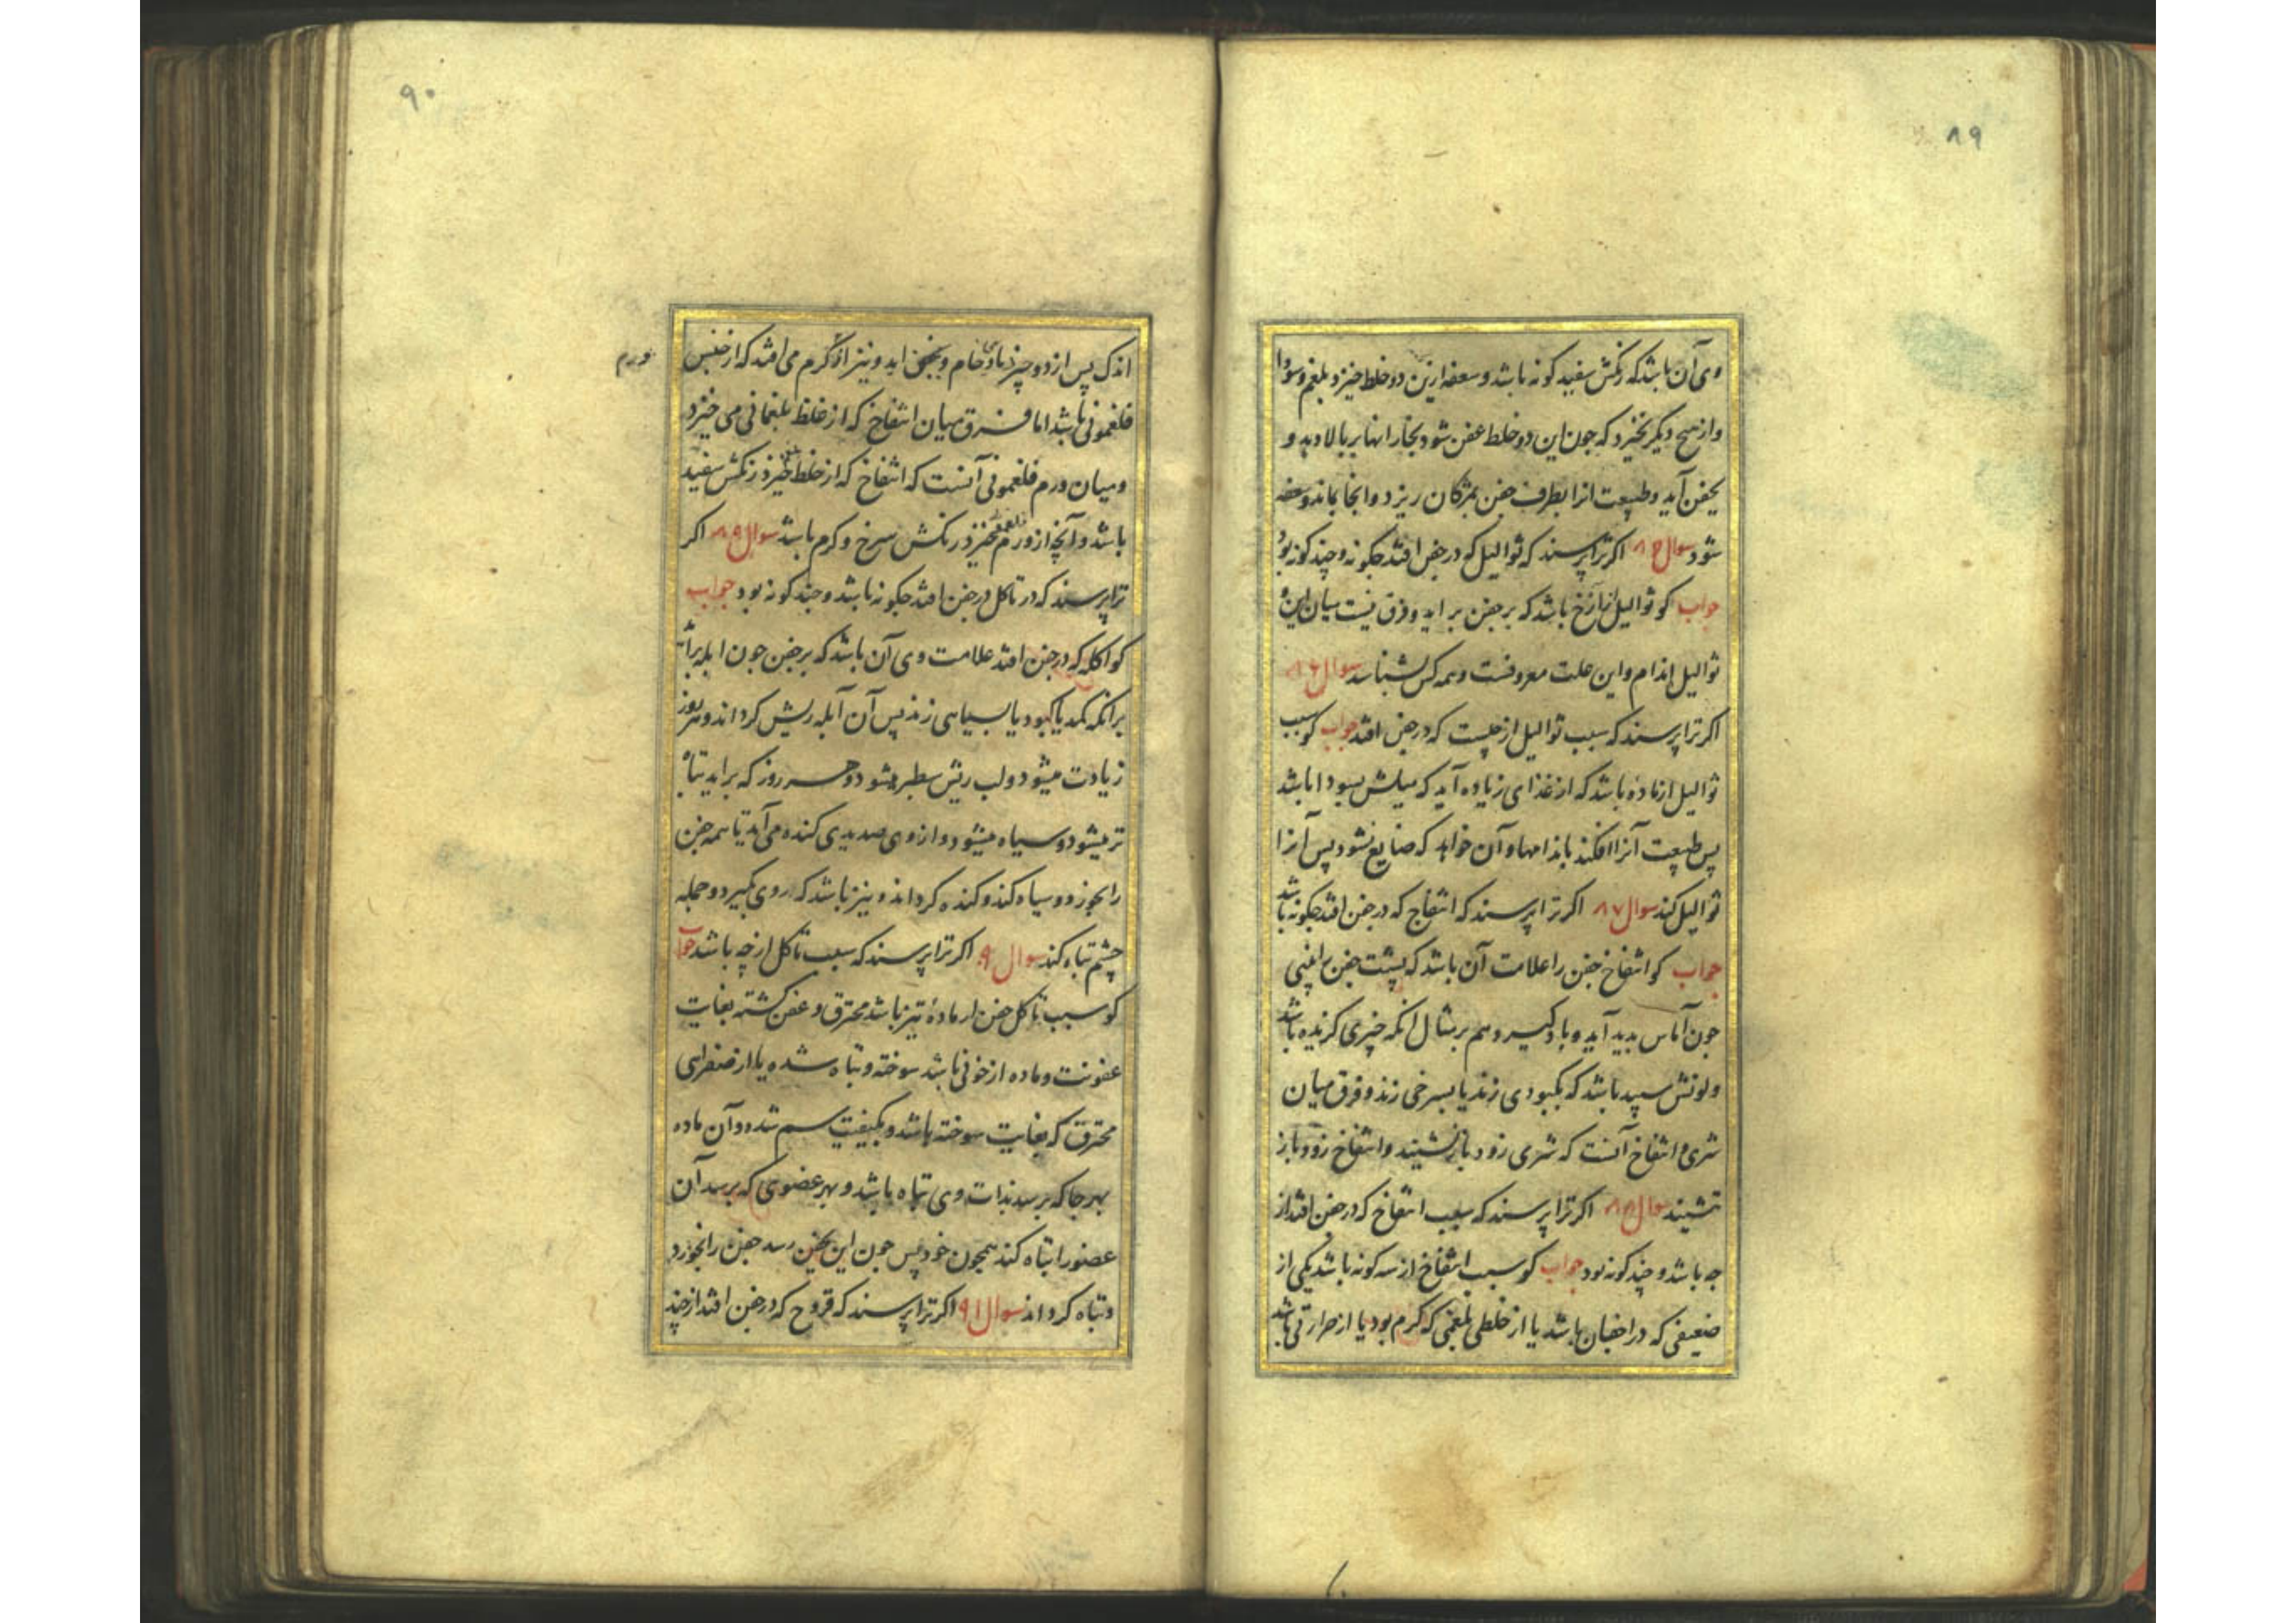 ۸۹
وی آن باشد که رنکش سفید کونه باشد و سعفه ازین دو خلط خیزد بلغم و سودا
و از هیچ دیکر نخیزد که جون این دو خلط عفن شود بخار انها بربالا دود و
بجفن آید و طبیعت انرا بطرف جفن بمژکان ریزد و انجا بماند و سعفه
شود سوال ۸۵ اکر ترا پرسند که ثوالیل که در جفن افتد جکونه و چند کونه بود
جواب کو ثوالیل ازآژخ باشد که بر جفن بر اید و فرق نیست میان این و
ثوالیل اندام و این علت معروفست و همه کس بشناسد سوال ۸۶
اکر ترا پرسند که سبب ثوالیل از چیست که در جفن افتد جواب کو سبب
ثوالیل از ماده باشد که از غذای زیاده آید که میلش بسودا باشد
پس طبیعت آنرا افکند باندامها و آن خواهد که ضایع نشود پس آنرا
ثوالیل کند سوال ۸۷ اکر ترا پرسند که انتفاخ که در جفن افتد جکونه باشد
جواب کو انتفاخ جفن را علامت آن باشد که پشت جفن
جون آماس بدید آید و باد کیرد هم بر مثال انکه خیری کزنده باشد
و لونش سپید باشد که بکبودی زند یا بسرخی زند و فرق میان
شری و انتفاخ آنست که شری زود باز نشیند و انتفاخ زود باز
ننشیند سوال ۸۸ اکر ترا پرسند که سبب انتفاخ که در جفن افتد از
جه باشد و چند کونه بود جواب کو سبب انتفاخ از سه کونه باشد یکی از
ضعیفی که در اجفان باشد یا از خلطی بلغمی که کرم بود یا از حرارتی باشد
۹۰
اندک پس از دو چیز خام و بر اید و نیز از کرم می افتد که از جنس
ورم
فلغمونی باشد اما فرق میان انتفاخ که از خلط بلغمانی می خیزد
و میان ورم فلغمونی آنست که انتفاخ که از خلط بلغم خیزد رنکش سفید
باشد و آنچه از ورم فلغمونی خیزد رنکش سرخ و کرم باشد سوال ۸۹ اکر
ترا پرسند که در تاکل در جفن افتد جکونه باشد و چند کونه بود جواب
کو اکله که در جفن افتد علامت وی آن باشد که بر جفن جون ابله براید
برانکه کمد یا کبود یا بسیاهی زند پس آن آبله ریش کرداند و هر روز
زیادت میشود و لب ریش سطبر میشود و هر روز که براید تباه
تر میشود و سیاه میشود و از وی صدیدی کنده می آید تا همه جفن
را بخورد و سیاه کند و کنده کرداند و نیز باشد که روی بکیرد و جمله
چشم تباه کند سوال ۹۰ اکر ترا پرسند که سبب تاکل از چه باشد جواب
کو سبب تاکل جفن از مادهٔ تیز باشد محترق و عفن کشته بغایت
عفونت و ماده از خونی باشد سوخته و تباه شده یا از صفرایی
محترق که بغایت سوخته باشد و بکیفیت سم شده و آن ماده
بهر جا که برسد بذات وی تباه باشد و بهر عضوی که برسد آن
عضو را تباه کند همچون خود پس جون این بجفن رسد جفن را بخورد
و تباه کرداند سوال ۹۱ اکر ترا پرسند که قروح که در جفن افتد از چند